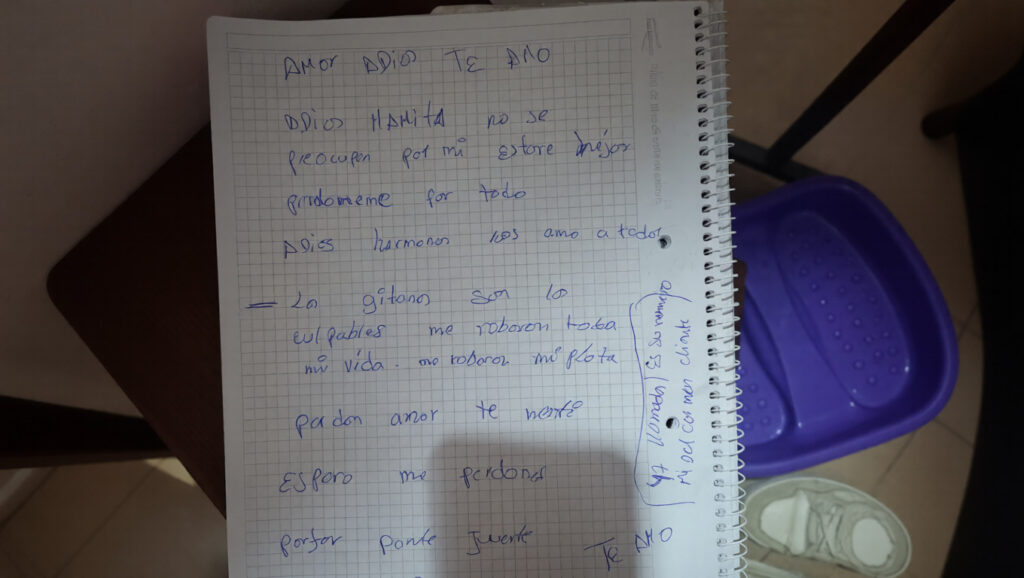 AMOr ADIOS TE AMO
ADiOS MAMitA no se
preocupen por mi estare mejor
perdoneme por todo
ADios hermanos los amo a todos
La gitanas son la
culpables me robaron toda
mi vida. me robaron mi plata
perdon amor te menti
ESpero me perdones
porfar ponte fuerte TE AMO